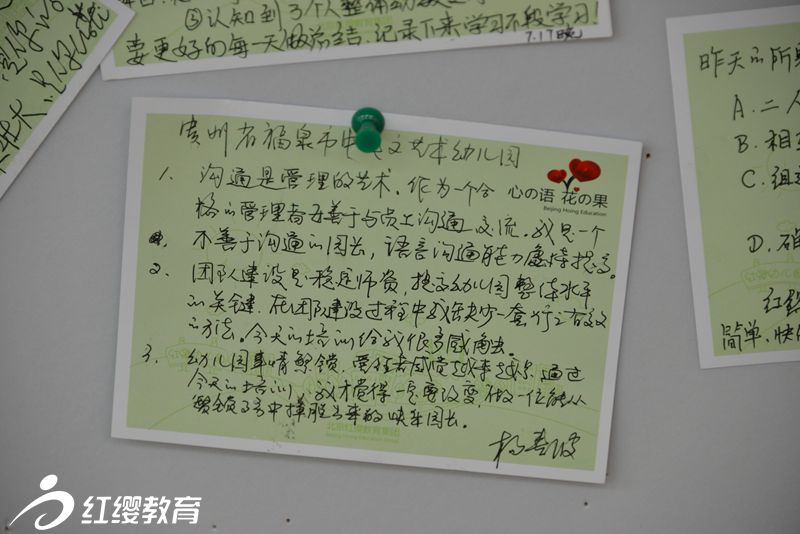 ③认知到3个人整体
要更好的每一天做总结,记录下来学习不段学习!
7.17晚
贵州省福泉市中 文艺体幼儿园
心の语 花の果
Beijing Hoing Education
1. 沟通是管理的艺术,作为一个合
格的管理者要善于与员工沟通交流。我是一个
不善于沟通的园长,语言沟通能力虚待提高。
2. 团队建设是稳定师资,提高幼儿园整体水平
的关键,在团队建设过程中我缺少一套行之有效
的方法。今天的培训给我很多感触。
3. 幼儿园事情繁锁,责任者感觉越来越 通过
今天的培训,我才觉得 需要改变,做一位能从
繁锁 务中挣脱出来的快乐园长。
北京红缨教育集团
Beijing Hoing Education Group
昨天的所
A.二人
B.相互
C.组
D.确
红缨
简单、快
红缨教育